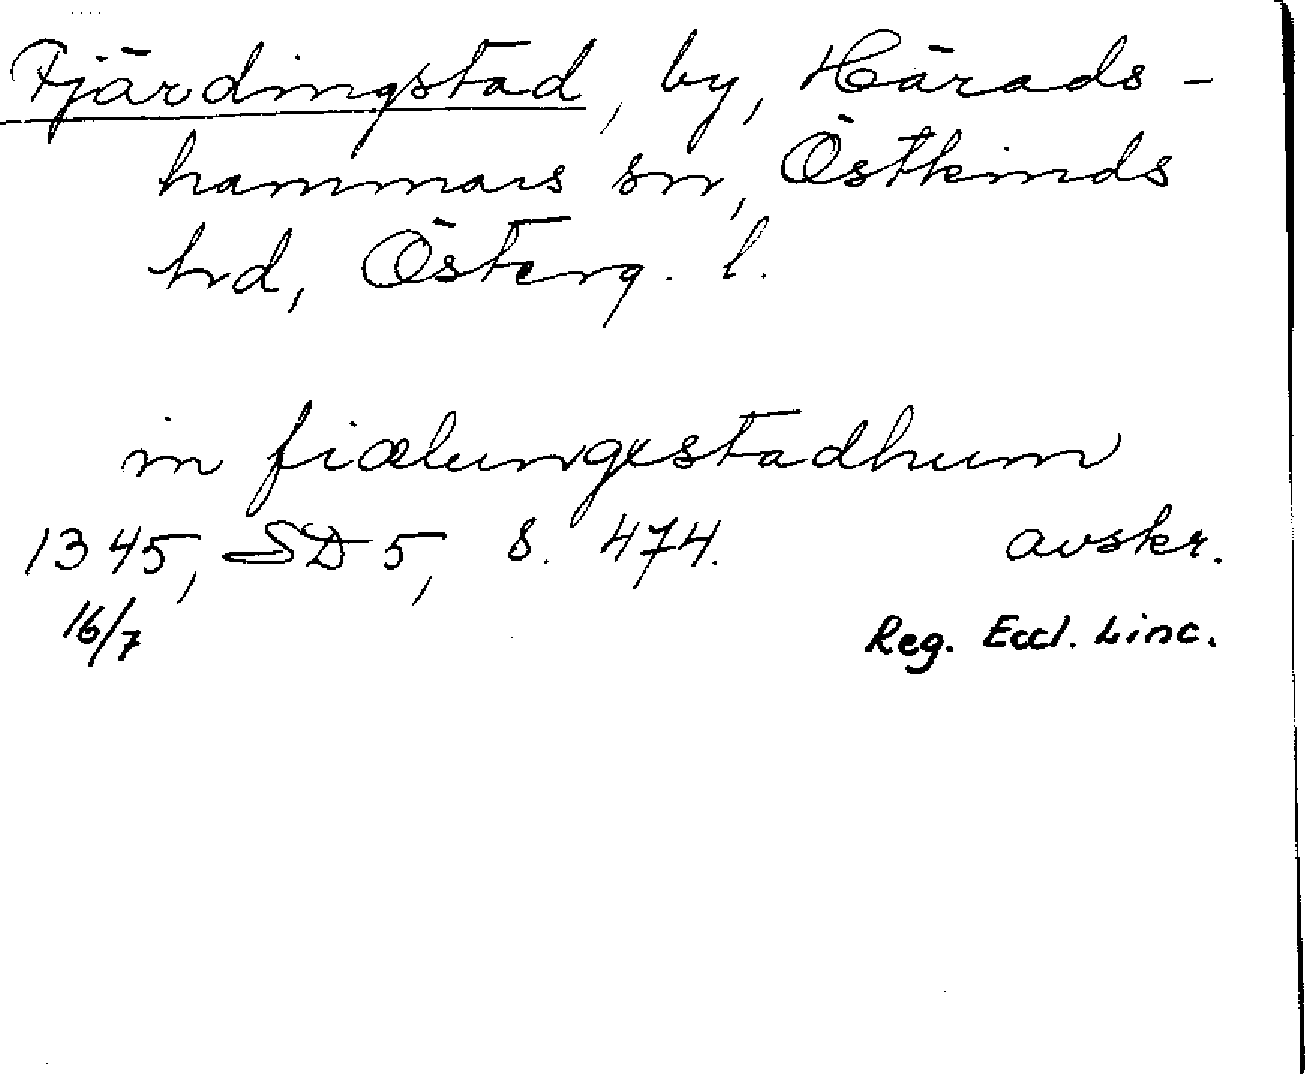 Fjärdingstad, by, Härads-
hammars sn, Östkinds
hrd, Österg. l.
in fiælungxstadhum
1345, SD 5, s. 474. avskr.
16/7 Reg. Eccl. Linc.